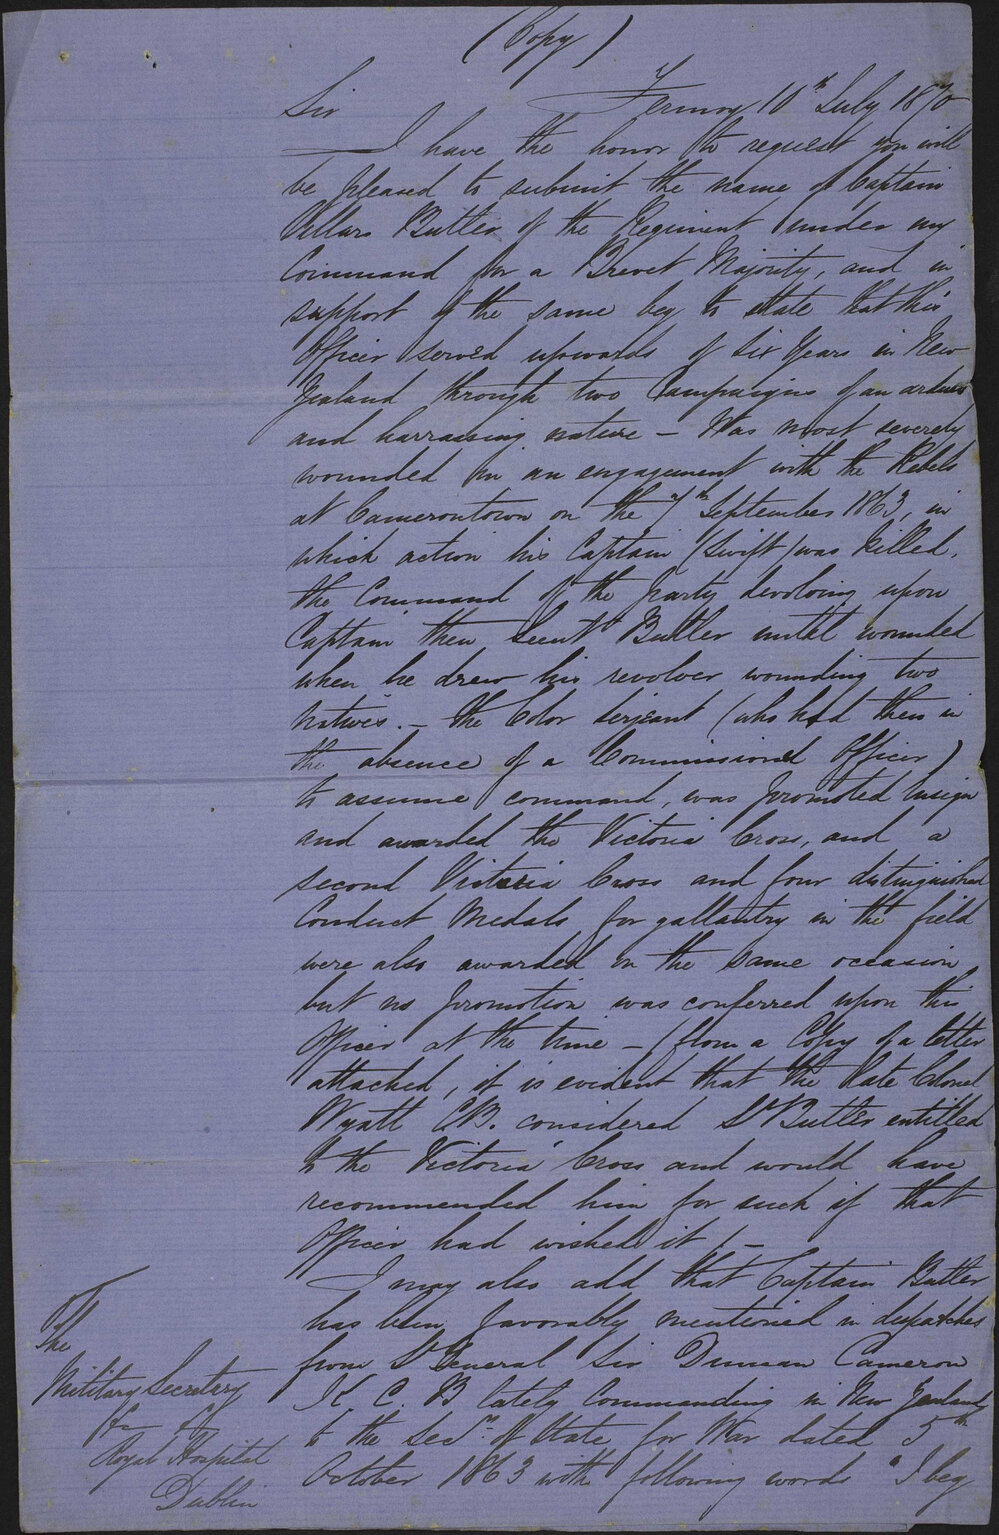 (Copy)
Fermoy 10th July 1870
Sir
I have the honor to request you will
be pleased to submit the name of Captain
Villars Butler of the Regiment under my
Command for a Brevet Majority, and in
support of the same beg to state that this
Officer served upwards of Six Years in New
Zealand through two Campaigns of an arduous
and harrassing nature – Was most severely
wounded in an engagement with the Rebels
at Camerontown on the 7th September 1863, in
which action his Captain (Swift) was killed,
the Command of the Party devolving upon
Captain then Lieut Butler until wounded
when he drew his revolver wounding two
natives. – the Color Serjeant (who had then in
the absence of a Commissioned Officer)
to assume command, was promoted Ensign
and awarded the Victoria Cross, and a
second Victoria Cross and four distinguished
Conduct Medals for gallantry in the field
were also awarded on the same occasion
but no promotion was conferred upon this
Officer at the time – (from a Copy of a letter
attached, it is evident that the late Colonel
Wyatt CB. considered Lt Butler entitled
to the Victoria Cross and would have
recommended him for such if that
Officer had wished it) –
I may also add that Captain Butler
has been favorably mentioned in despatches
from Lt General Sir Duncan Cameron
K.C.B lately Commanding in New Zealand
to the Secy of State for War dated 5th
October 1863 with following words "I beg
The
Military Secretary
Royal Hospital
Dublin